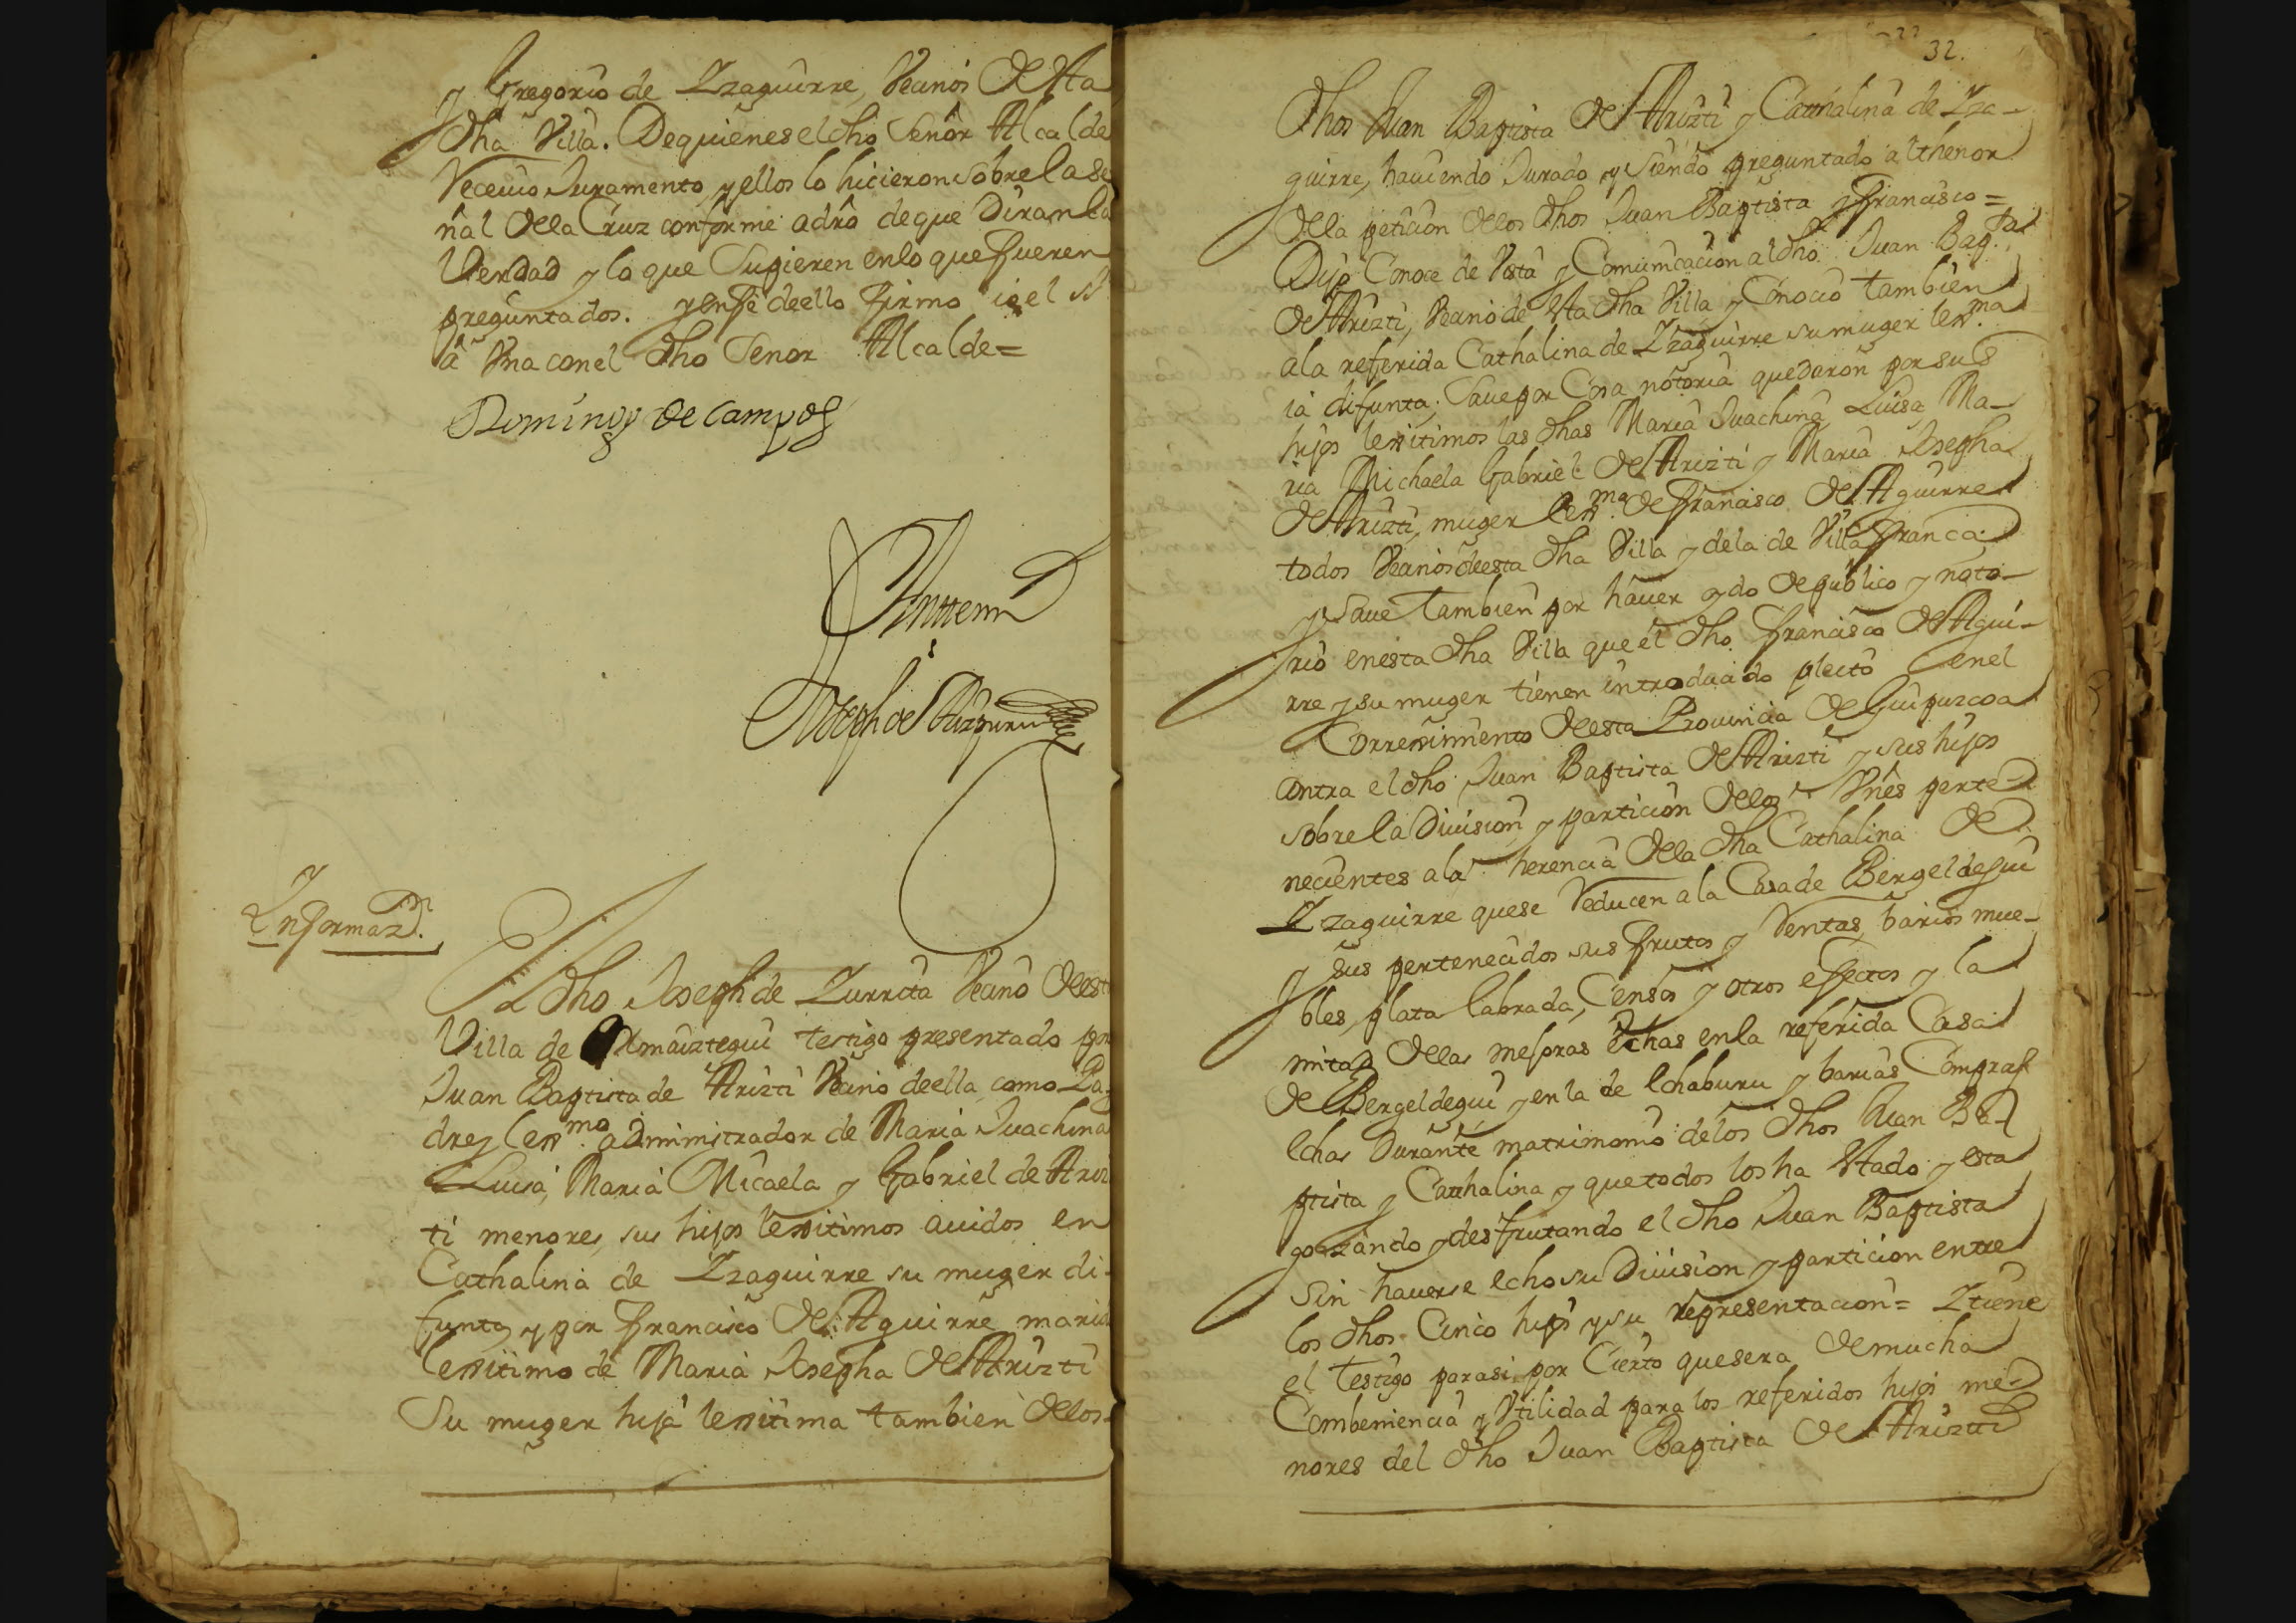 y Gregorio de Yzaguirre, Veçinos desta
dha Villa. De quienes el dho Señor Alcalde
Reçeuio Juramento, y ellos lo hicieron sobre la se
ñal della Cruz conforme a dro de que Diran la
Verdad y lo que Supieren en lo que fueren
preguntados. y en fe dello firmo io el
a Vna con el dho Señor Alcalde=
Domingo de Campos
Antte mi
Joseph de Aizpuru
Informazn.
El dho Joseph de Zurrita Veçino desta
Villa de Ormaiztegui testigo presentado por
Juan Baptista de Arizti Veçino de ella, como Pa-
dre y lexmo administrador de Maria Juachina
Luisa, Maria Micaela y Gabriel de Ariz
ti menores, sus hijos lexitimos auidos en
Cathalina de Yzaguirre su muger di-
funta, y por Francisco de Aguirre marido
lexitimo de Maria Josepha de Arizti
Su muger hija lexitima tambien delos-
32.
dhos Juan Baptista de Arizti y Cathalina de Yza-
guirre, hauiendo Jurado y Siendo preguntado al thenor
della petiçion delos dhos Juan Baptista y Francisco=
Dijo Conoce de Vista y Comunicaçion al dho Juan Bapta
de Arizti, Veçino de esta dha Villa y Conocio tambien
ala referida Cathalina de Yzaguirre su muger lexma
ia difunta; Saue por Cosa notoria quedaron por sus
hijos lexitimos las dhas Maria Juachina, Luisa Ma-
ria Michaela Gabriel de Arizti y Maria Josepha
de Arizti, muger lexma de Francisco de Aguirre
todos Veçinos de esta dha Villa y de la de Villafranca.
y Saue tambien por hauer oydo de publico y noto-
rio en esta dha Villa que el dho Francisco de Agui-
rre y su muger tienen introduçido pleito en el
Correximiento de esta Prouincia de Guipuzcoa
contra el dho Juan Baptista de Arizti y sus hijos
sobre la Diuision y partiçion delos Vienes perte-
neçientes ala herencia dela dha Cathalina de
Yzaguirre que se Reducen ala Casa de Bergeldegui
y sus perteneçidos sus frutos y Rentas, barios mue-
bles, plata labrada, Censos y otros effectos y la
mitad dellas mejoras echas en la referida Casa
de Bergeldegui y en la de Echaburu y barias Compras
echas Durante matrimonio de los dhos Juan Ba-
ptista y Cathalina y que todos los ha estado y esta
gozando y desfrutando el dho Juan Baptista
Sin hauerse echo su Diuision y particion entre
los dhos Cinco hijos y su representacion= Y tiene
el Testigo para si por Cierto que sera de mucha
Combeniencia y Vtilidad para los referidos hijos me-
nores del dho Juan Baptista de Arizti